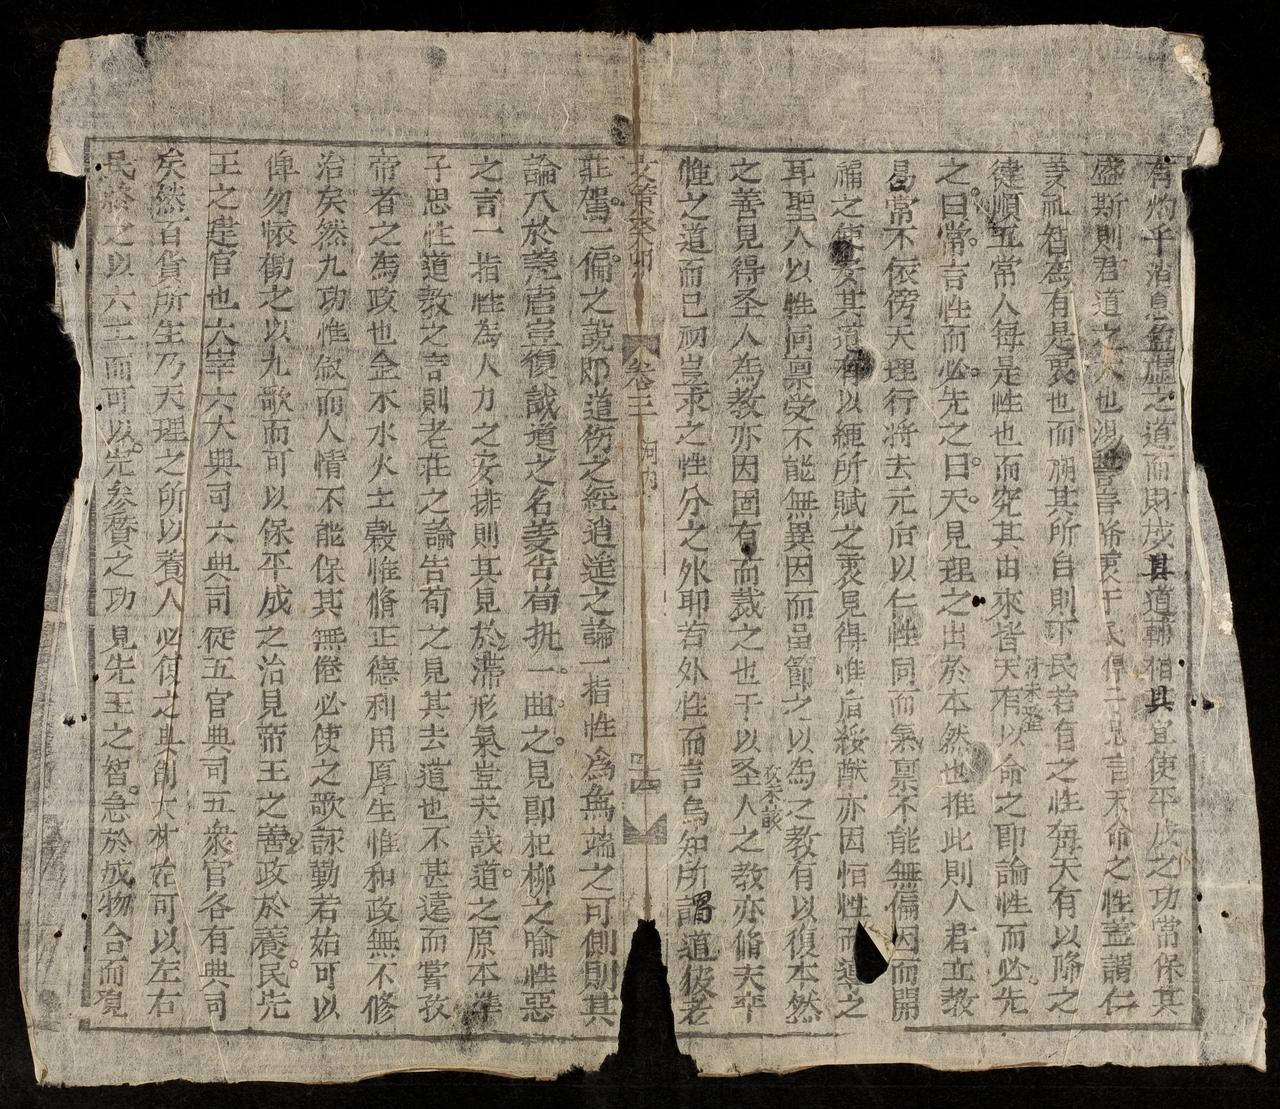 有灼乎消息盈虛之道而財成其道輔相其宜使平成之功常保其
盛斯則君道之大也湯誥言降衷于民傳子思言天命之性蓋謂仁
義礼智為有是衷也而廸其所自則下民若有之性每天有以降之
健順五常人每是性也而究其由來皆天有以命之即論性而必先
之曰常言性而必先之曰天見理之出於本然也推此則人君立教
曷常不依傍天理行將去元后以仁性同而氣禀不能無偏因而開
牖之使安其道有以綏所賦之衷見得惟后綏猷亦因恒性而導之
耳聖人以性同禀受不能無異因而品節之以為之教有以復本然
之善見得圣人為教亦因固有而裁之也于以圣人之教亦脩天率
惟之道而已初豈求之性分之外耶若外性而言烏知所謂道彼老
卷三
四
莊駕一偏之說即道伤之經逍遥之論一指性為無端之可側則其
論入於荒唐豈復誠道之名菱告荀執一曲之見即杞柳之喻性惡
之言一指性為人力之安排則其見於滯形氣豈夫哉道之原本準
子思性道教之言則老荘之論告荀之見其去道也不甚遠而嘗孜
帝者之為政也金木水火土穀惟脩正德利用厚生惟和政無不修
治矣然九功惟敘而人情不能保其無倦必使之歌詠勤若始可以
俾勿怀勸之以九歌而可以保平成之治見帝王之善政於養民先
王之建官也大宰六大典司六典司徒五官典司五衆官各有典司
矣然百貨所生乃天理之所以養人必使之其制大材在可以左右
民終之以六工而可以完參賛之功見先王之智急於成物合而覌